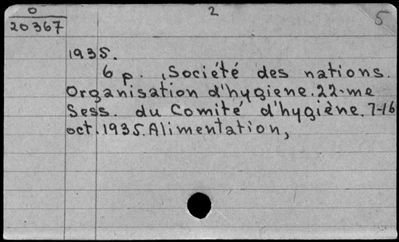 0 2 5
20367
1935.
6 p. , Société des nations.
Organisation d'hygiene. 22-me
Sess. du Comité d'hygiène. 7-16
oct. 1935. Alimentation,